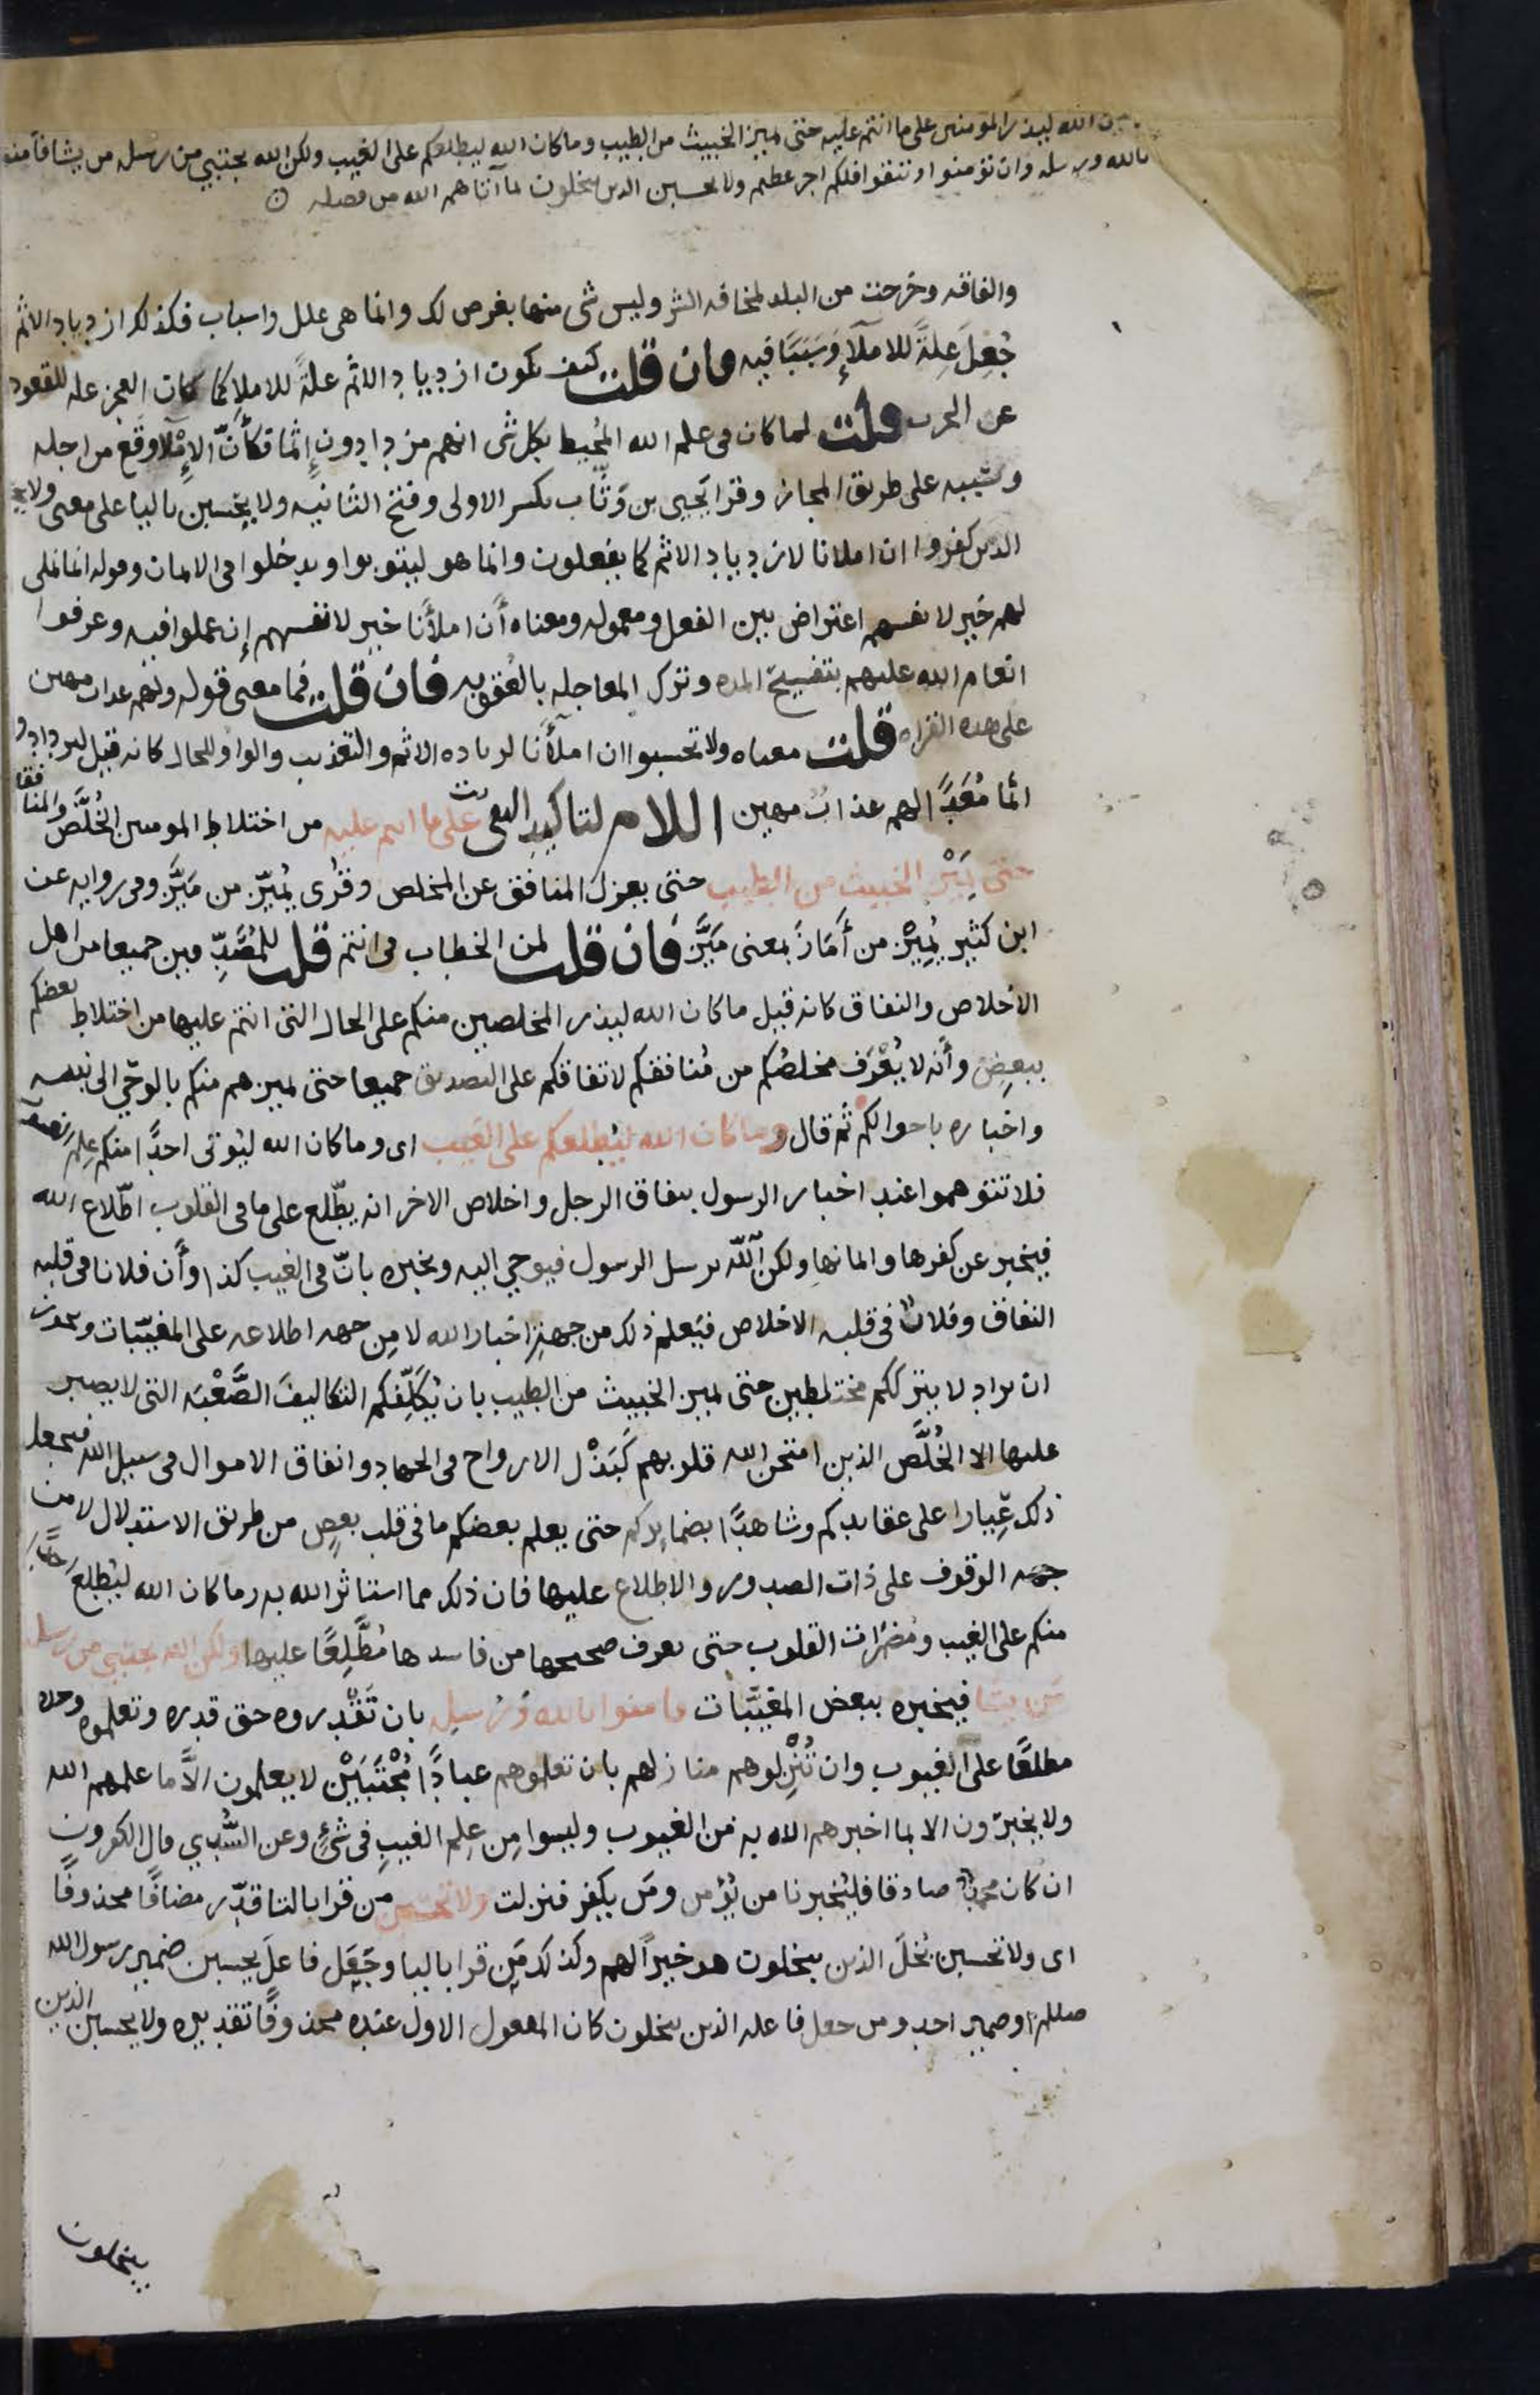 الله ليذر المومنين على ما انتم عليه حتى يميز الخبيث من الطيب وما كان الله ليطلعكم على الغيب ولكن الله يجتبي من رسله من يشا فآمنوا
بالله ورسله وان تؤمنوا وتتقوا فلكم اجر عظيم ولا يحسبن الذين يبخلون بما آتاهم الله من فضله
والفاقه وخرجت من البلد لمخافه الشر وليس شى منها بغرض لك وانما هى علل واسباب فكذلك ازدياد الاثم
جُعِلَ عِلةً للاملآءِ وَسَبَبًا فيه فان قلت كيف يكون ازدياد الاثم علةً للاملاِ كما كان العجز عله للقعود
عن الحرب قلت لما كان فى علم الله المُحيط بكل شى انهم مزدادون إثما فكأنّ الإملآ وقع من اجله
وبسببه على طريق المجاز وقرا يَحيى بن وَثّاب بكسر الاولى وفتح الثانيه ولا يحسبن باليا على معنى ولا يحسبن
الذين كفروا ان املانا لازدياد الاثم كما يفعلون وانما هو ليتوبوا ويدخلوا فى الايمان وقوله انما نملى
لهم خير لانفسهم اعتراض بين الفعل ومعموله ومعناه أَن املأَنا خير لانفسهم إن عملوا فيه وعرفوا
انعام الله عليهم بتفسيح المده وترك المعاجله بالعُقوبه فان قلت فما معنى قوله ولهم عذاب مهين
على هذه القراه قلت معناه ولا تحسبوا ان املأَنا لزياده الاثم والتعذيب والواو للحال كانه قيل ليزدادوا
اثما مُعَدًّا لهم عذابٌ مهين اللام لتاكيد النفى على ما انتم عليه من اختلاط المومنين الخُلَّصِ والمنافقين
حتى يَمِيْزَ الخبيث من الطيب حتى يعزل المنافق عن المخلص وقرى يُمَيّز من مَيَّزَ وفى روايه عن
ابن كثير يُمِيْز من أَمَازَ بمعنى مَيَّزَ فان قلت لمن الخطاب فى انتم قلت للمُصَدِّقين جميعا من اهل
الاخلاص والنفاق كانه قيل ما كان الله ليذر المخلصين منكم على الحال التى انتم عليها من اختلاط بعضكم
ببعضٍ وأَنه لا يُعْرَف مخلصُكم من مُنافقكم لاتفاقكم على التصديق جميعا حتى يميزهم منكم بالوحي الى نبيه
واخباره باحوالكم ثم قال وما كان الله ليُطلعكم على الغيب اى وما كان الله ليُوتى احدًا منكم علم الغيوب
فلا تتوهموا عند اخبار الرسول بنفاق الرجل واخلاص الاخر انه يطّلع على ما فى القلوب اطّلاع الله
فيخبر عن كفرها وايمانها ولكن اللّه يرسل الرسول فيوحي اليه ويخبره بانّ فى الغيب كذا وأَن فلانا فى قلبه
النفاق وفلانٌ فى قلبه الاخلاص فيَعلم ذلك من جهةِ اخبار الله لا مِن جهه اطلاعه على المغيّبات ويجوز
ان يراد لا يترككم مختلطين حتى يميز الخبيث من الطيب بان يُكَلِّفكم التكاليفَ الصَّعْبَه التى لا يصبر
عليها الا الخُلَّص الذين امتحن الله قلوبهم كَبَذْل الارواح فى الجهاد وانفاق الاموال فى سبيل الله فيجعل
ذلك عِيارا على عقايدكم وشاهدًا بضمايركم حتى يعلم بعضكم ما فى قلب بعضٍ من طريق الاستدلال لا من
جهه الوقوف على ذات الصدور والاطلاع عليها فان ذلك مما استاثر الله به وما كان الله ليُطلعَ احدًا
منكم على الغيب ومُضمَرات القلوب حتى يعرف صحيحها من فاسدها مُطَّلِعًا عليها ولكن الله يجتبي من رسله
من يشا فيخبره ببعض المغيَّبات فامنوا بالله ورُسِله بان تَقْدِروه حق قدره وتعلموه وحده
مطلعًا على الغيوب وان تُنْزِلوهم منازلهم بان تعلموهم عبادًا مُجْتَبَيْنَ لا يعلمون الاَّ ما علمهم الله
ولا يخبرون الا بما اخبرهم الله به من الغيوب وليسوا مِن عِلم الغيبِ فى شىءٍ وعن السُّدي قال الكفرون
ان كان محمدٌ صادقا فليُخبرنا من يُؤمن ومَن يكفر فنزلت ولا تحسبن مَن قرا بالتا قدّر مضافًا محذوفًا
اى ولا تحسبن بُخلَ الذين يبخلون هو خيراً لهم وكذلك مَن قرا باليا وجَعَل فاعلَ يحسبن ضمير رسول الله
صللم او ضمير احد ومن جعل فاعله الذين يبخلون كان المفعول الاول عنده محذوفًا تقديره ولا يحسبن الذين
يبخلون